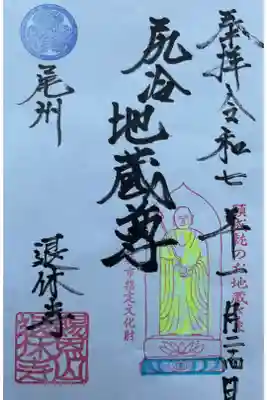 奉拝 令和七年一月二四日
尻冷地蔵尊
のお地蔵さま
市指定文化財
尾州
退休寺